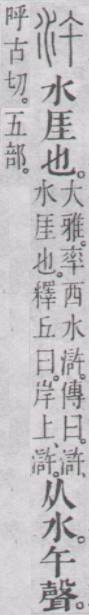 汻水厓也。大雅。率西水滸。傳曰。滸、水厓也。釋丘曰。岸上、滸。从水。午聲。
呼古切。五部。